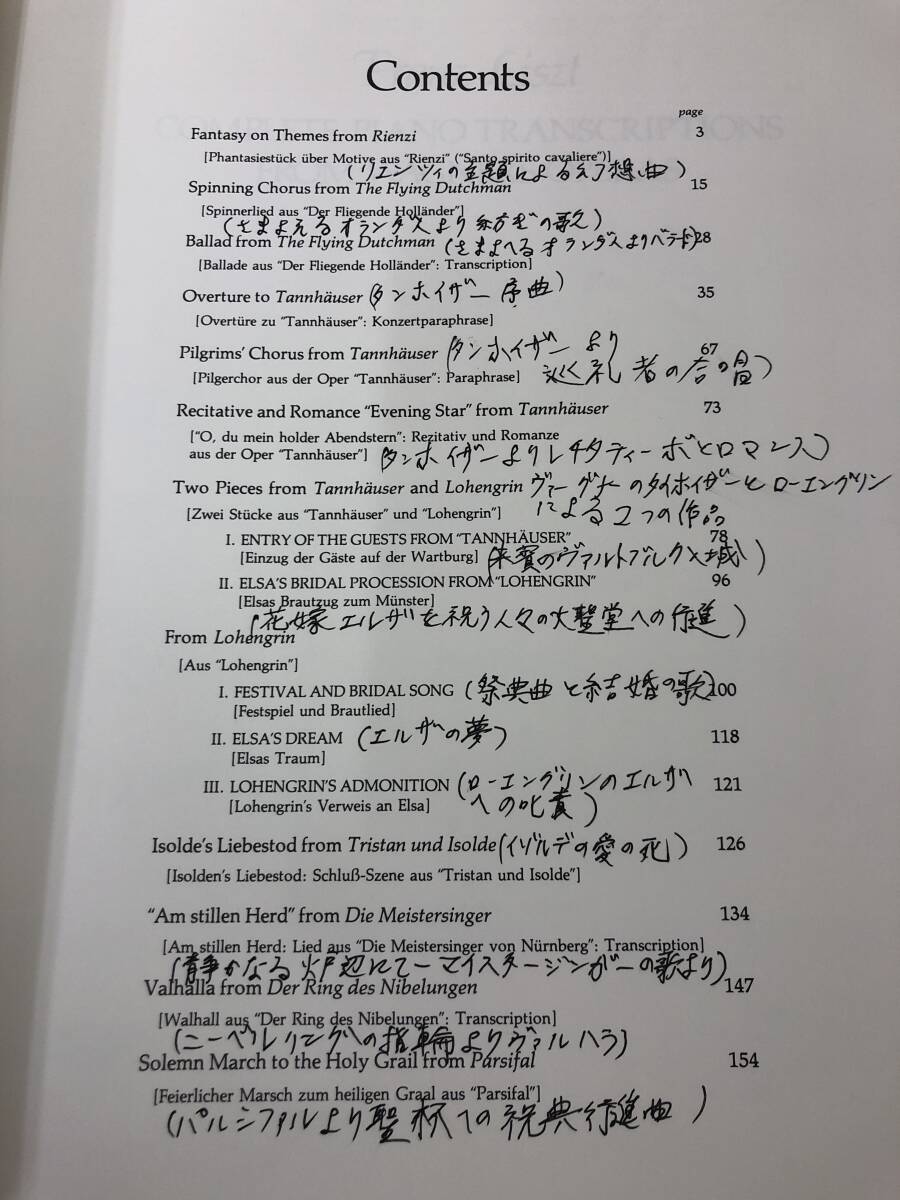 Contents
page
Fantasy on Themes from Rienzi 3
[Phantasiestück über Motive aus "Rienzi" ("Santo spirito cavaliere")]
(リエンツィの主題による幻想曲)
Spinning Chorus from The Flying Dutchman 15
[Spinnerlied aus "Der Fliegende Holländer"]
(さまよえるオランダ人より 紡ぎの歌)
Ballad from The Flying Dutchman (さまよへるオランダ人よりバラード) 28
[Ballade aus "Der Fliegende Holländer": Transcription]
Overture to Tannhäuser (タンホイザー 序曲) 35
[Overtüre zu "Tannhäuser": Konzertparaphrase]
Pilgrims' Chorus from Tannhäuser (タンホイザーより 67
[Pilgerchor aus der Oper "Tannhäuser": Paraphrase] 巡礼者の合唱)
Recitative and Romance "Evening Star" from Tannhäuser 73
["O, du mein holder Abendstern": Rezitativ und Romanze
aus der Oper "Tannhäuser"] (タンホイザーよりレチタティーボとロマンス)
Two Pieces from Tannhäuser and Lohengrin ヴァーグナーのタイホイザーとローエングリン
[Zwei Stücke aus "Tannhäuser" und "Lohengrin"] による2つの作品
I. ENTRY OF THE GUESTS FROM "TANNHÄUSER" 78
[Einzug der Gäste auf der Wartburg] (来賓のヴァルトブルク入城)
II. ELSA'S BRIDAL PROCESSION FROM "LOHENGRIN" 96
[Elsas Brautzug zum Münster]
(花嫁エルザを祝う人々の大聖堂への行進)
From Lohengrin
[Aus "Lohengrin"]
I. FESTIVAL AND BRIDAL SONG (祭典曲と結婚の歌) 100
[Festspiel und Brautlied]
II. ELSA'S DREAM (エルザの夢) 118
[Elsas Traum]
III. LOHENGRIN'S ADMONITION (ローエングリンのエルザ 121
[Lohengrin's Verweis an Elsa] への叱責)
Isolde's Liebestod from Tristan und Isolde (イゾルデの愛の死) 126
[Isolden's Liebestod: Schluß-Szene aus "Tristan und Isolde"]
"Am stillen Herd" from Die Meistersinger 134
[Am stillen Herd: Lied aus "Die Meistersinger von Nürnberg": Transcription]
(静かなる炉辺にてーマイスタージンガーの歌より)
Valhalla from Der Ring des Nibelungen 147
[Walhall aus "Der Ring des Nibelungen": Transcription]
(ニーベルリングへの指輪よりヴァルハラ)
Solemn March to the Holy Grail from Parsifal 154
[Feierlicher Marsch zum heiligen Graal aus "Parsifal"]
(パルシファルより聖杯への祝典行進曲)